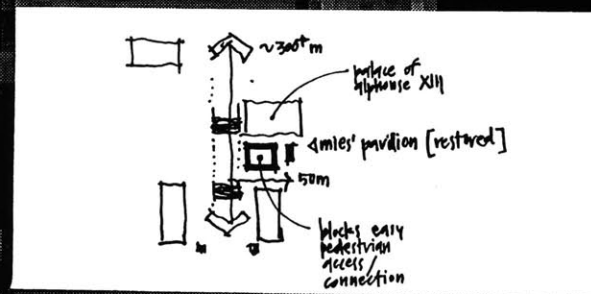 ~300+ m
palace of
alphonse XIII
mies' pavilion [restored]
50m
blocks easy
pedestrian
access/
connection